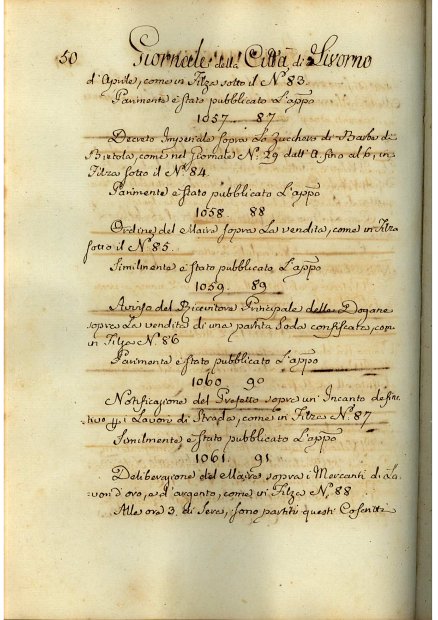 50 Giornale della Città di Livorno
d'Aprile, come in Filza sotto il N° 83.
Parimente è stato pubblicato L'appo
1057. 87
Decreto Imperiale sopra Lo Zucchero di Barbe di
Bietola, come nel Giornale N. 29 dall' A. fino al b, in
Filza sotto il N° 84.
Parimente è stato pubblicato L'appo
1058. 88
Ordine del Maire sopra La vendita, come in Filza
sotto il N° 85.
Similmente è stato pubblicato L'appo
1059. 89
Avviso del Ricevitore Principale delle Dogane
sopra La vendita di una partita Soda confiscata, come
in Filza N° 86
Parimente è stato pubblicato L'appo
1060 90
Notificazione del Prefetto sopra un Incanto defini
tivo p i Lavori di Strada, come in Filza N° 87
Similmente è stato pubblicato L'appo
1061. 91
Deliberazione del Maire sopra i Mercanti di La
vori d'oro, e d'argento, come in Filza N° 88
Alle ore 3. di Sera, sono partiti questi Coscritti